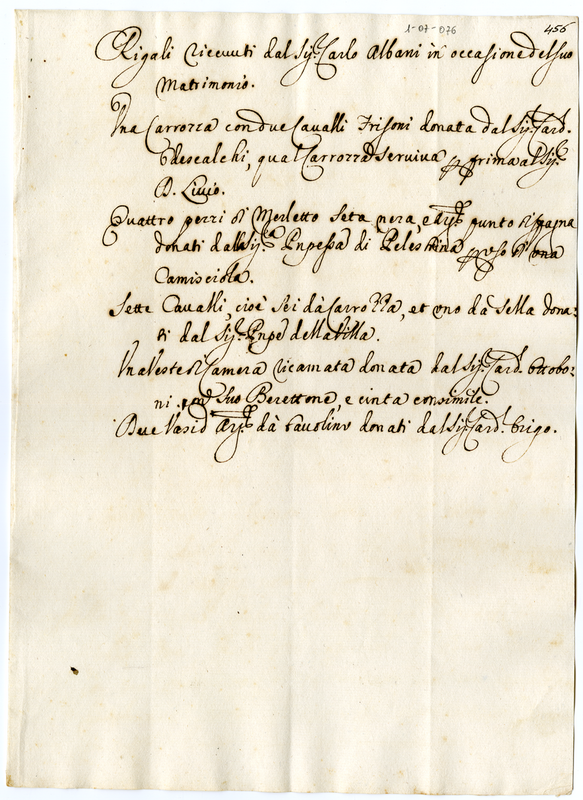 1-07-076
456
Rigali riceuuti dal Sig.r Carlo Albani in occasione del suo
Matrimonio.
Una Carrozza con due Cavalli Frisoni donata dal Sig.r Card.l
Odescalchi, qual Carrozza seruiua prima al Sig.r
D. Livio.
Quattro pezzi di Merletto seta nera, e arg.to punto di spagna
donati dalla Sig.ra Pnpessa di Pelestrina p uso di una
Camisciola.
Sette Cavalli, cioè sei da Carrozza, et uno da sella dona:
ti dal Sig.r Pnpe della
Una Veste di Camera ricamata donata dal Sig.r Card.l Ottobo:
ni con suo Berettone, e cinta consimile.
Due Vasi d'Arg.to da tavolino donati dal Sig.r Card.l